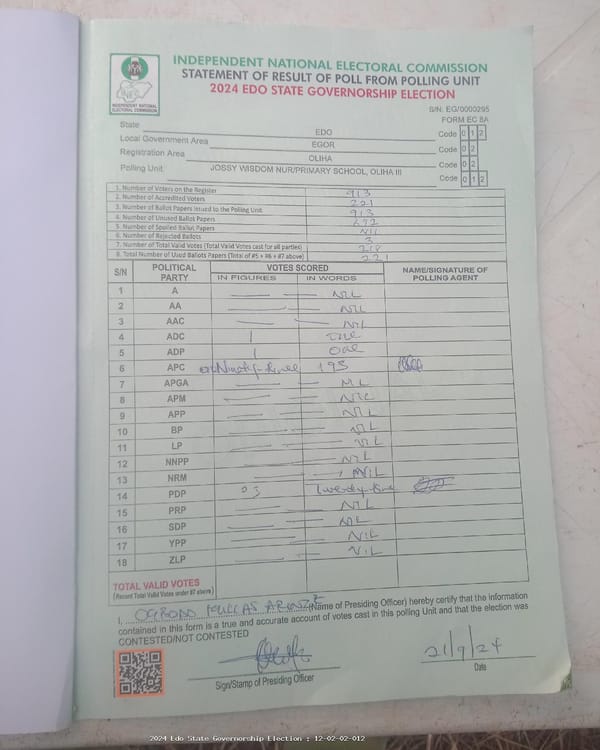 INDEPENDENT NATIONAL ELECTORAL COMMISSION
STATEMENT OF RESULT OF POLL FROM POLLING UNIT
2024 EDO STATE GOVERNORSHIP ELECTION
INDEPENDENT NATIONAL ELECTORAL COMMISSION
S/N. EG/0000295
FORM EC 8A
State EDO Code 0 1 2
Local Government Area EGOR Code 0 2
Registration Area OLIHA Code 0 2
Polling Unit: JOSSY WISDOM NUR/PRIMARY SCHOOL, OLIHA III Code 0 1 2
1. Number of Voters on the Register 913
2. Number of Accredited Voters 221
3. Number of Ballot Papers Issued to the Polling Unit 913
4. Number of Unused Ballot Papers 692
5. Number of Spoiled Ballot Papers NIL
6. Number of Rejected Ballots 3
7. Number of Total Valid Votes (Total Valid Votes cast for all parties) 218
8. Total Number of Used Ballots Papers (Total of #5 + #6 + #7 above) 221
S/N POLITICAL PARTY VOTES SCORED NAME/SIGNATURE OF POLLING AGENT
IN FIGURES IN WORDS
1 A NIL
2 AA NIL
3 AAC NIL
4 ADC 1 One
5 ADP 1 One
6 APC Ninety-three 193
7 APGA NIL
8 APM NIL
9 APP NIL
10 BP NIL
11 LP NIL
12 NNPP NIL
13 NRM NIL
14 PDP Twenty-
15 PRP NIL
16 SDP NIL
17 YPP NIL
18 ZLP NIL
TOTAL VALID VOTES
(Record Total Valid Votes under #7 above)
I, (Name of Presiding Officer) hereby certify that the information
contained in this form is a true and accurate account of votes cast in this polling Unit and that the election was
CONTESTED/NOT CONTESTED
21/9/24
Sign/Stamp of Presiding Officer Date
2024 Edo State Governorship Election : 12-02-02-012